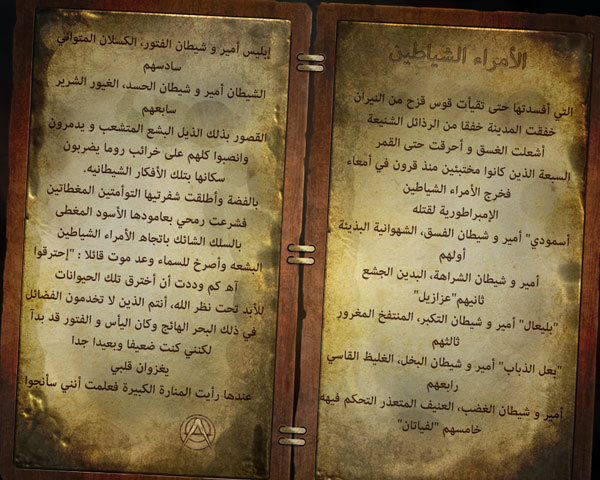 الأمراء الشياطين
التي أفسدتها حتى تقيأت قوس قزح من النيران
خفقت المدينة خفقا من الرذائل الشنيعة
أشعلت الغسق و أحرقت حتى القمر
السبعة الذين كانوا مختبئين منذ قرون في أمعاء
فخرج الأمراء الشياطين
الإمبراطورية لقتله
أسمودي" أمير و شيطان الفسق، الشهوانية البذيئة
أولهم
أمير و شيطان الشراهة، البدين الجشع
ثانيهم"عزازيل"
"بليعال" أمير و شيطان التكبر، المنتفخ المغرور
ثالثهم
"بعل الذباب" أمير و شيطان البخل، الغليظ القاسي
رابعهم
أمير و شيطان الغضب، العنيف المتعذر التحكم فيهه
خامسهم "لفياتان"
إبليس أمير و شيطان الفتور، الكسلان المتواني
سادسهم
الشيطان أمير و شيطان الحسد، الغيور الشرير
سابعهم
القصور بذلك الذيل البشع المتشعب و يدمرون
وانصبوا كلهم على خرائب روما يضربون
سكانها بتلك الأفكار الشيطانيه.
بالفضة وأطلقت شفرتيها التوأمتين المغطاتين
فشرعت رمحي بعامودها الأسود المغطى
بالسلك الشائك باتجاه الأمراء الشياطين
البشعه وأصرخ للسماء وعد موت قائلا : "إحترقوا
آه كم وددت أن أخترق تلك الحيوانات
للأبد تحت نظر الله، أنتم الذين لا تخدمون الفضائل
في ذلك البحر الهائج وكان اليأس و الفتور قد بدآ
لكنني كنت ضعيفا وبعيدا جدا
يغزوان قلبي
عندها رأيت المنارة الكبيرة فعلمت أنني سأنجوا